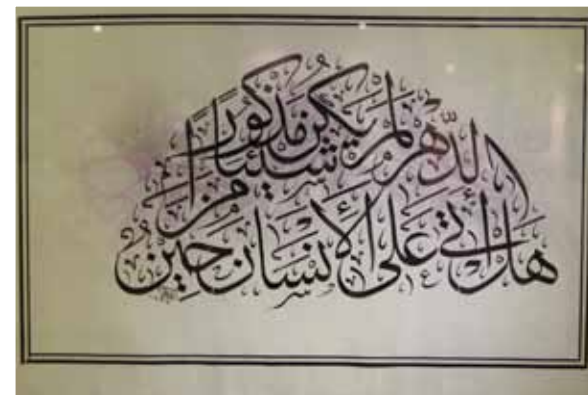 هَلْ أَتَىٰ عَلَى الْإِنْسَانِ حِينٌ
مِنَ الدَّهْرِ لَمْ يَكُنْ شَيْئًا مَذْكُورًا